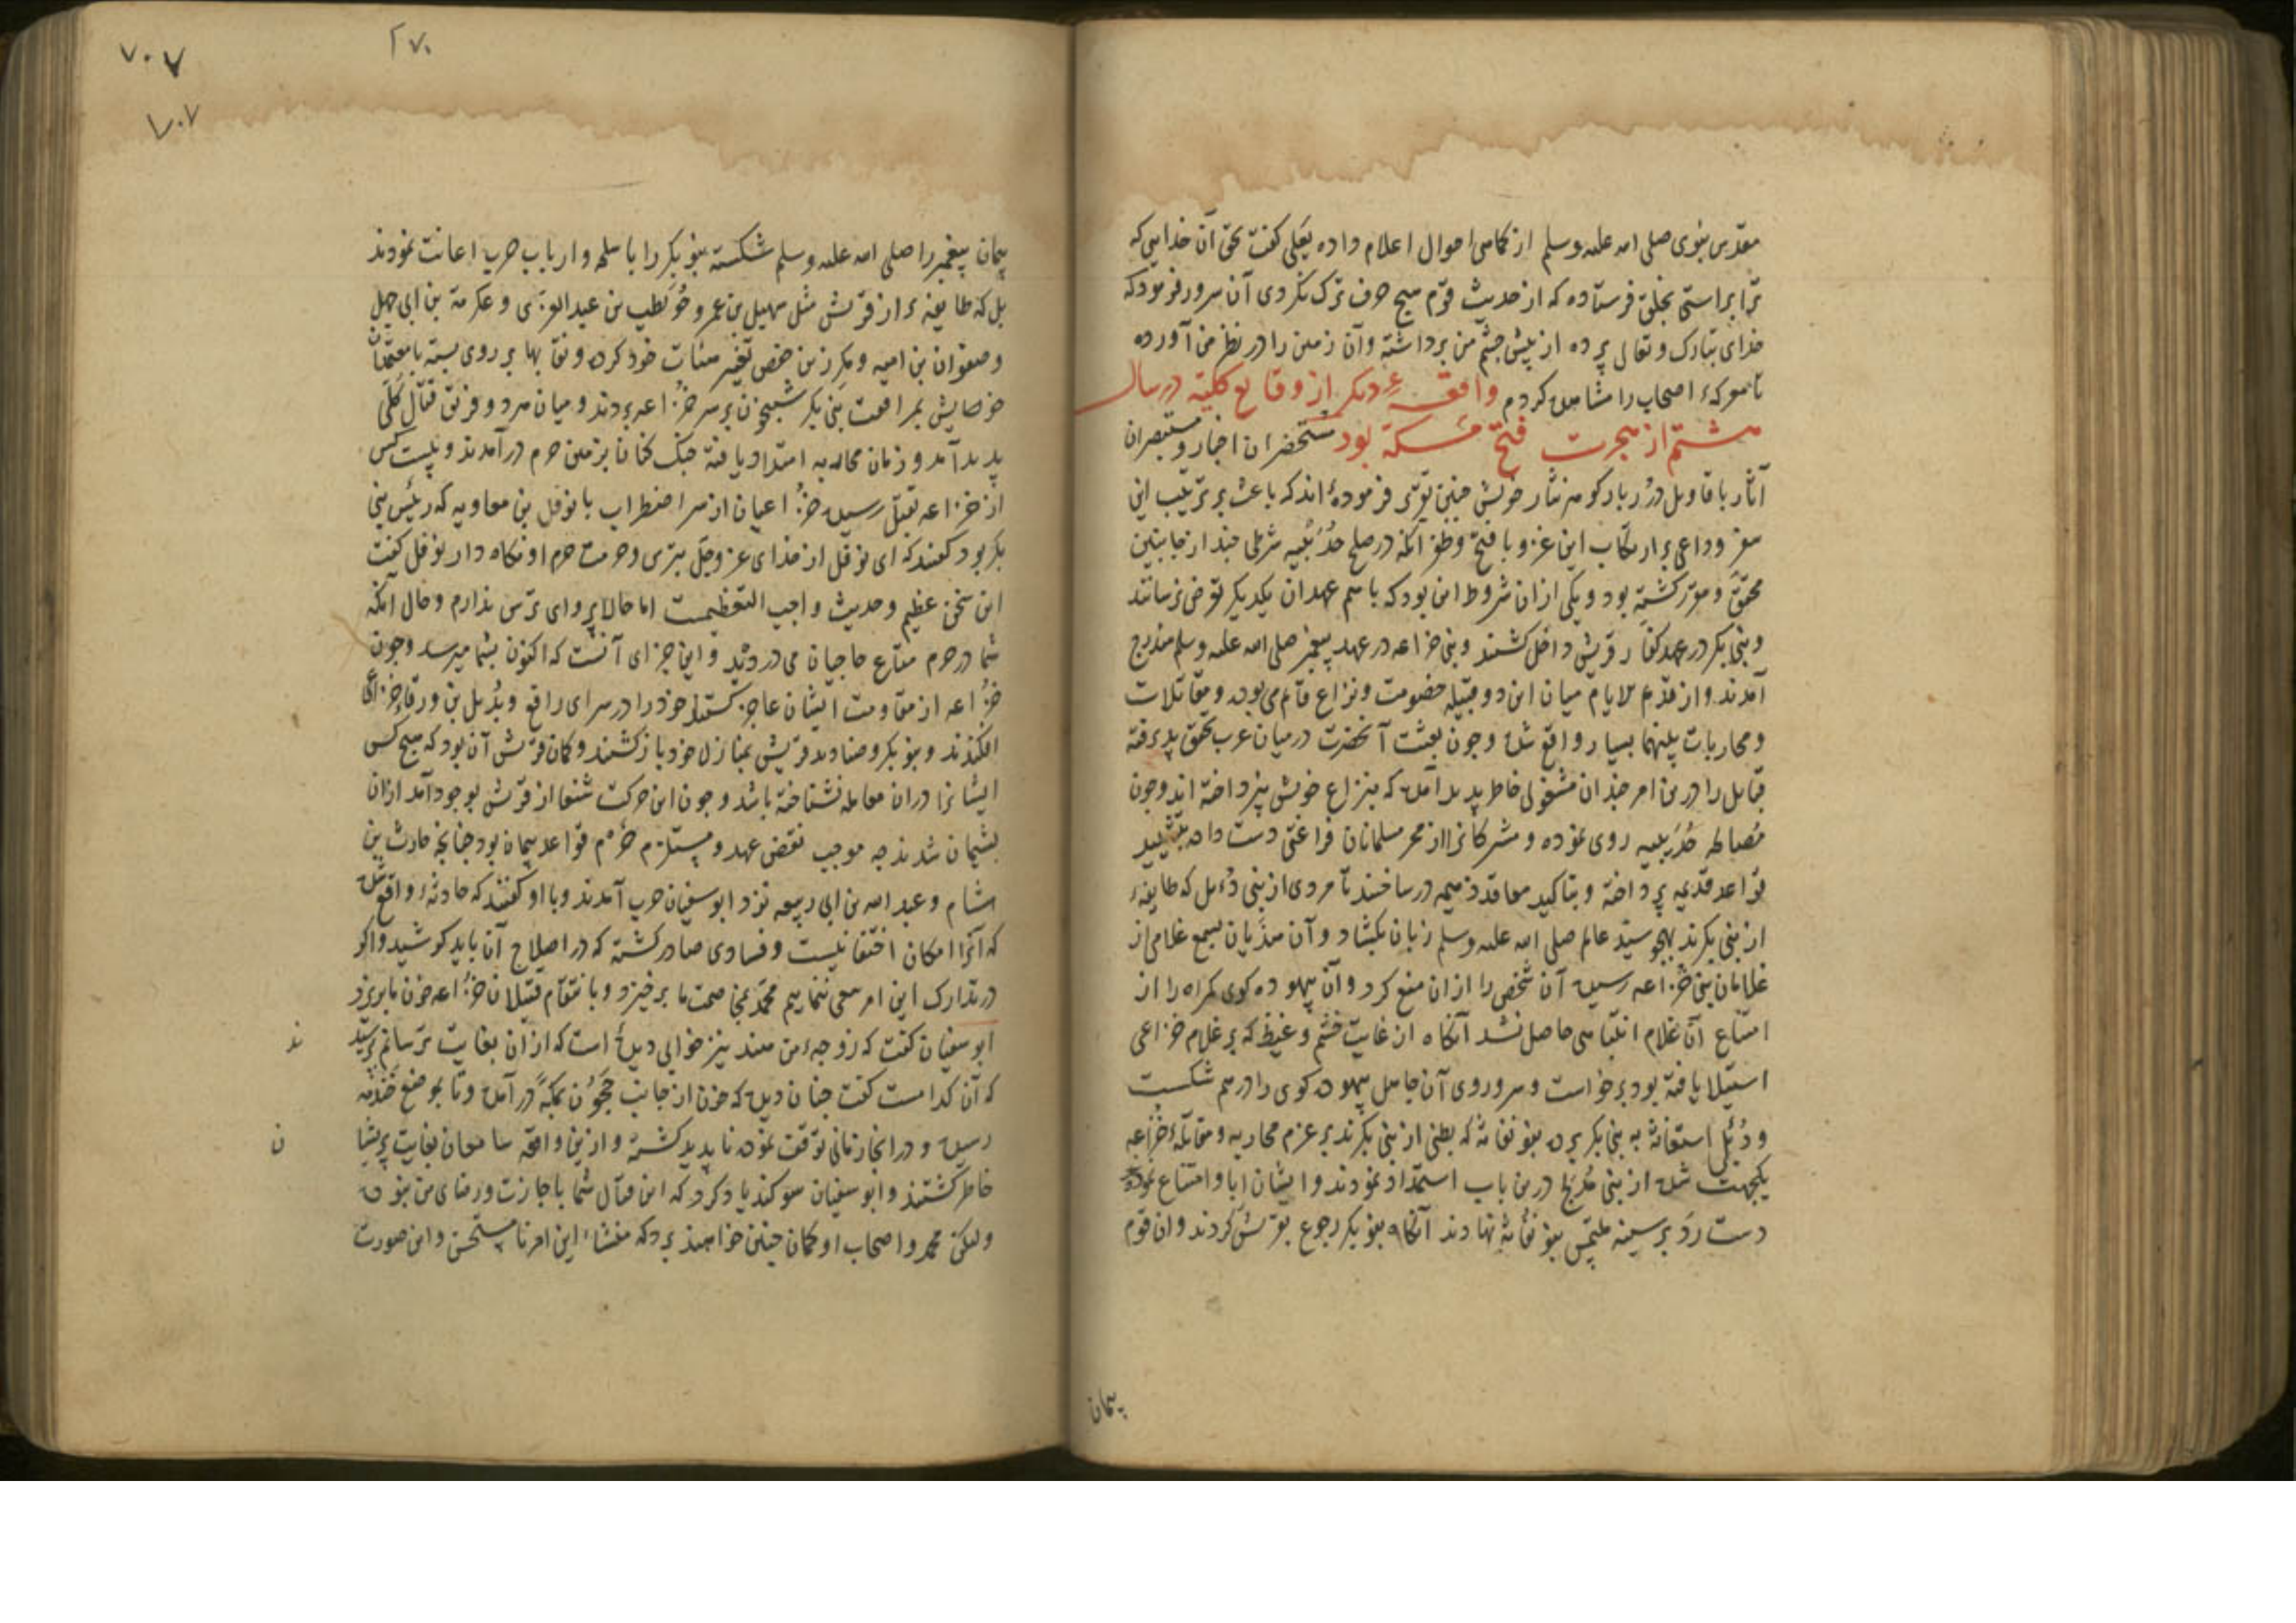 مقدس نبوی صلی الله علیه وسلم از تمامی احوال اعلام داده یعلی کفت بحق آن خدایی که
ترا براستی بخلق فرستاده که از حدیث قوم هیچ حرف ترک نکردی آن سرور فرمود که
خدای تبارک و تعالی پرده از پیش چشم من برداشته وآن زمین را در نظر من آورده
تا معرکهٔ اصحاب را مشاهده کردم واقعهٔ دیکر از وقایع کلیه در سال
هشتم از هجرت فتح مکه بود مستحضران اخبار و مستبصران
آثار باقاویل دُرربار کوهر نثار خویش چنین فرموده‌اند که باعث بر ترتیب این
سفر وداعی بر ارتکاب این غزو با فتح وظفر آنکه در صلح حُدَیْبیه شرطی چند از جانبین
محقق و مقرر کشته بود و یکی از ان شروط این بود که با هم عهدان یکدیکر تعرض نرسانند
وبنی بکر در عهد کفار قریش داخل کشتند وبنی خزاعه در عهد پیغمبر صلی الله علیه وسلم مندرج
آمدند واز قدیم الایام میان این دو قبیله خصومت ونزاع قائم می بوده و مقاتلات
ومحاربات بینهما بسیار واقع شده وجون بعثت آنحضرت در میان عرب تحقق پذیرفته
قبایل را درین امر چندان مشغولی خاطر پدید آمده که بنزاع خویش نپرداخته اند وجون
مُصالحه حُدَیبیه روی نموده و مشرکانرا از ممر مسلمانان فراغتی دست داده بتشیید
قواعد قدیمه پرداخته وبتاکید معاقد ذمیمه درساختند تا مردی از بنی دُءِل که طایفهٔ
از بنی بکرند بهجو سید عالم صلی الله علیه وسلم زبان بکشاد وآن هذیان بسمع غلامی از
غلامان بنی خزاعه رسیده آن شخص را ازان منع کرد وآن بیهوده کوی کمراه را از
امتناع آن غلام انتباهی حاصل نشد آنکاه از غایت خشم وغیظ که بر غلام خزاعی
استیلا یافته بود برخواست وسر وروی آن جاهل بیهوده کوی را درهم شکست
ودُئِل استغاثه به بنی بکر برده بنو نفاثه که بطنی از بنی بکرند بر عزم محاربه و مقاتلهٔ خزاعه
یکجهت شده از بنی مُدلج درین باب استمداد نمودند وایشان ابا وامتناع نموده
دست رد بر سینه ملتمس بنو نفاثه نهادند آنکاه بنو بکر رجوع بقریش کردند وان قوم
پیمان
۷۰۷
۲۷۰
۷۰۷
پیمان پیغمبر را صلی الله علیه وسلم شکسته بنو بکر را باسلحه وارباب حرب اعانت نمودند
بل که طایفهٔ از قریش مثل سهیل بن عمرو وحُوَیطب بن عبدالعزی و عکرمة بن ابی جهل
وصفوان بن امیه ومکرز بن حفص تغییر هیئات خود کرده ونقابها بر روی بسته با متعلقان
خصایش بمرافقت بنی بکر شبیخون بر سر خزاعه بردند ومیان هر دو فرقة قتال کلی
پدید آمد وزمان محاربه امتداد یافته جنک کنان بزمین حرم درآمدند وبیست کس
از خزاعه بقتل رسیده خزاعیان از سر اضطراب با نوفل بن معاویه که رئیس بنی
بکر بود کفتند که ای نوفل از خدای عز وجل بترس وحرمت حرم او نکاه دار نوفل کفت
این سخن عظیم وحدیث واجب التعظیمست اما حالا پروای ترس ندارم وحال آنکه
شما در حرم متاع حاجیان می دزدید واین جزای آنست که اکنون بشما میرسد وجون
خزاعه از مقاومت ایشان عاجز کشتند خود را در سرای رافع وبُدَیل بن ورقاء خزاعی
افکندند وبنو بکر وصنادید قریش بمنازل خود باز کشتند وکمان قریش آن بود که هیچ کس
ایشانرا دران معامله نشناخته باشد وجون این حرکت شنعا از قریش بوجود آمد ازان
پشیمان شدند چه موجب نقض عهد ومستلزم هدم قواعد پیمان بود چنانچه حارث بن
هشام وعبد الله بن ابی ربیعه نزد ابوسفیان حرب آمدند وبا او کفتند که حادثهٔ واقع شده
که آنرا امکان اختفا نیست وفسادی صادر کشته که در اصلاح آن باید کوشید واکر
در تدارک این امر سعی ننماییم محمد بمخاصمت ما برخیزد وبانتقام قتیلان خزاعه خون ما بریزد
ابوسفیان کفت که زوجه من هند نیز خوابی دیده است که ازان بغایت ترسانم پرسید
ند
که آن کدامست کفت چنان دیده که خون از جانب حَجُون بمکه درآمده وتا بموضع خندمه
رسیده ودر انجا زمانی توقف نموده ناپدید کشته واز این واقعه سامعان بغایت پریشا
ن
خاطر کشتند وابوسفیان سوکند یاد کرد که این قتال شما باجازت ورضای من نبوده
ولیکن محمد واصحاب او کمان چنین خواهند برد که منشاء این امر نامستحسن واین صورت